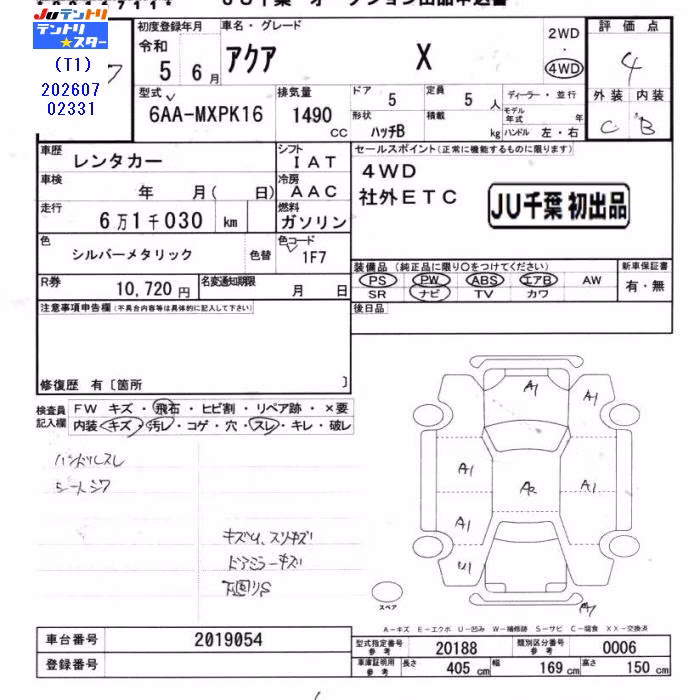 JU千葉 オークション出品申込書
JUテントリ
テントリ★スター
(T1)
202607
02331
初度登録年月
令和
5年 6月
車名・グレード
アクア X
2WD
・
4WD
評価点
4
外装 内装
C B
型式
6AA-MXPK16
排気量
1490 CC
ドア 5
定員 5 人
形状 ハッチB
積載 kg
ディーラー・並行
モデル年式 年
ハンドル 左・右
車歴
レンタカー
シフト
IAT
車検
年 月( 日)
冷房
AAC
走行
6万1千030 km
燃料
ガソリン
色
シルバーメタリック
色替
色コード
1F7
R券
10,720円
名変通知期限
月 日
セールスポイント(正常に機能するものに限ります)
4WD
社外ETC
JU千葉 初出品
装備品 (純正品に限り○をつけてください)
PS PW ABS エアB AW
SR ナビ TV カワ
新車保証書
有・無
後日品
注意事項申告欄(不具合内容等は具体的に記入して下さい)
修復歴 有〔箇所 〕
検査員
記入欄
FW キズ・飛石・ヒビ割・リペア跡・×要
内装 キズ・汚レ・コゲ・穴・スレ・キレ・破レ
ハンドルスレ
シートシワ
キズU、スリキズ
ドアミラーキズ
下回りS
A1
A1
A1
A2
A1
A1
U1
スペア
A−キズ E−エクボ U−凹み W−補修跡 S−サビ C−腐食 XX−交換済
車台番号
2019054
登録番号
型式指定番号
参考
20188
類別区分番号
参考
0006
車庫証明用
参考
長さ 405 cm
幅 169 cm
高さ 150 cm